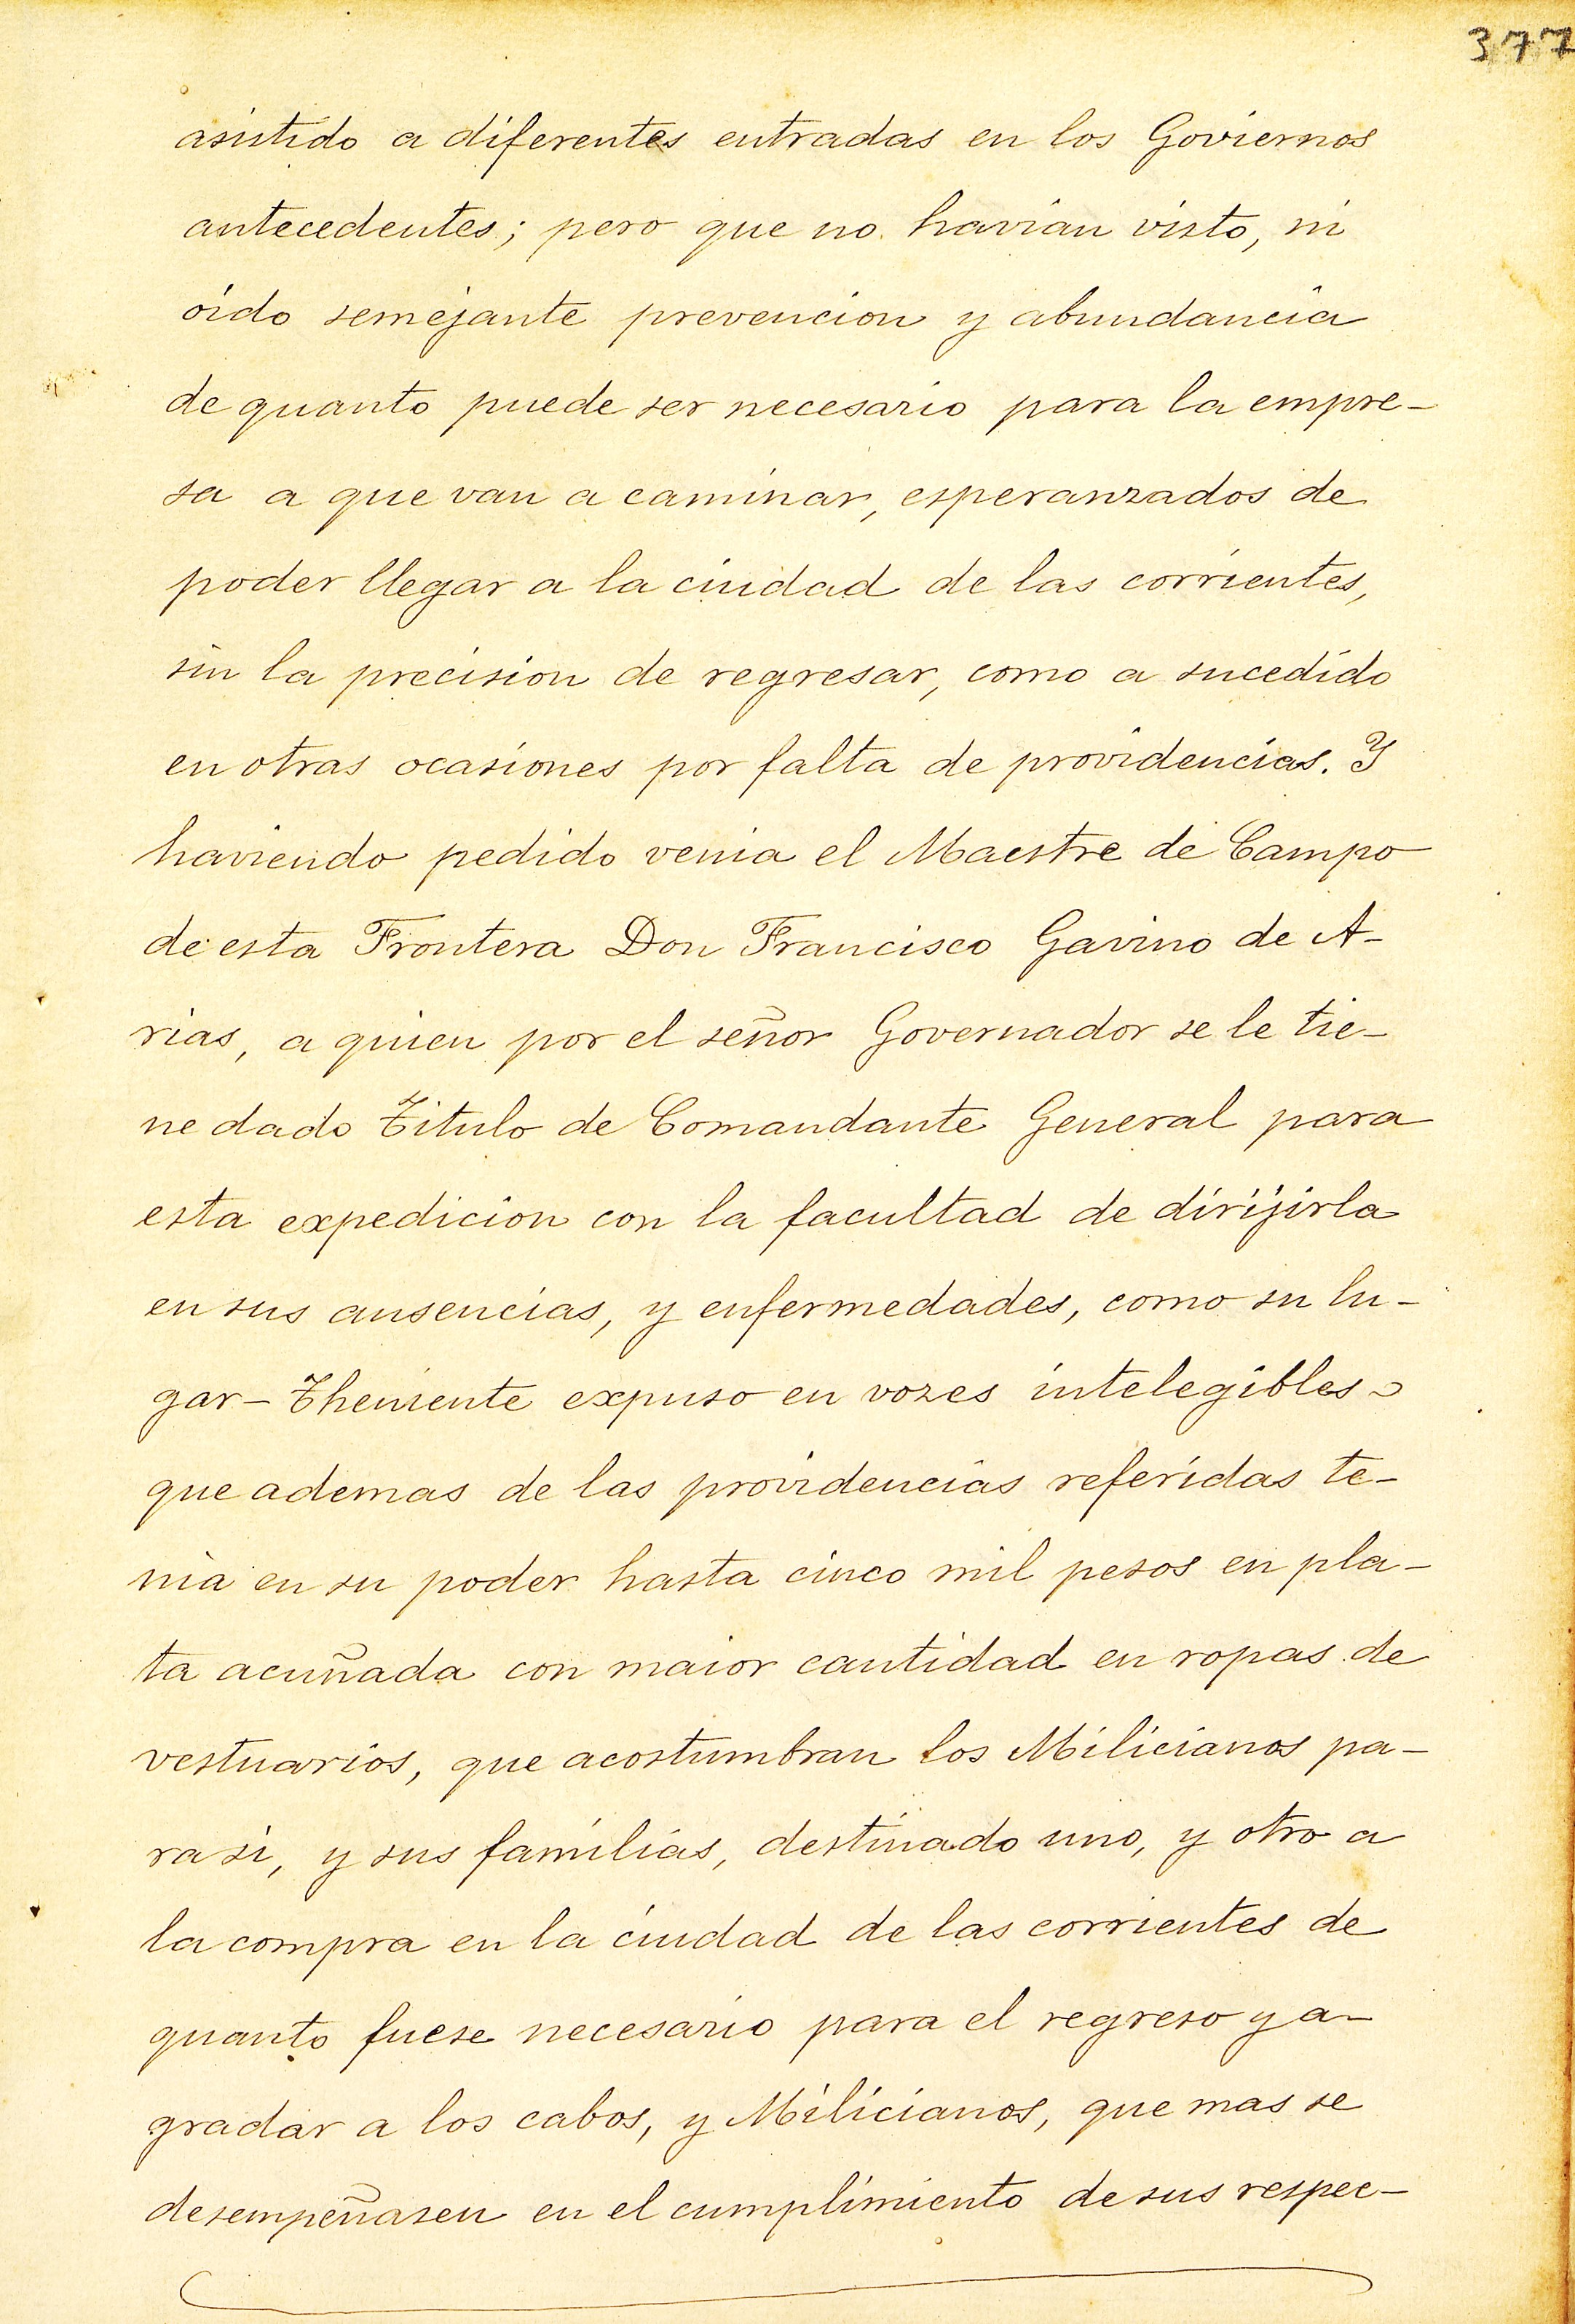 377
asistido a diferentes entradas en los Goviernos
antecedentes; pero que no havian visto, ni
oido semejante prevencion y abundancia
de quanto puede ser necesario para la empre-
sa a que van a caminar, esperanzados de
poder llegar a la ciudad de las corrientes,
sin la precision de regresar, como a sucedido
en otras ocasiones por falta de providencias. Y
haviendo pedido venia el Maestre de Campo
de esta Frontera Don Francisco Gavino de A-
rias, a quien por el señor Governador se le tie-
ne dado Titulo de Comandante General para
esta expedicion con la facultad de dirijirla
en sus ausencias, y enfermedades, como su lu-
gar-Theniente expuso en vozes intelegibles
que ademas de las providencias referidas te-
nia en su poder hasta cinco mil pesos en pla-
ta acuñada con maior cantidad en ropas de
vestuarios, que acostumbran los Milicianos pa-
ra si, y sus familias, destinado uno, y otro a
la compra en la ciudad de las corrientes de
quanto fuese necesario para el regreso y a-
gradar a los cabos, y Milicianos, que mas se
desempeñasen en el cumplimiento de sus respec-